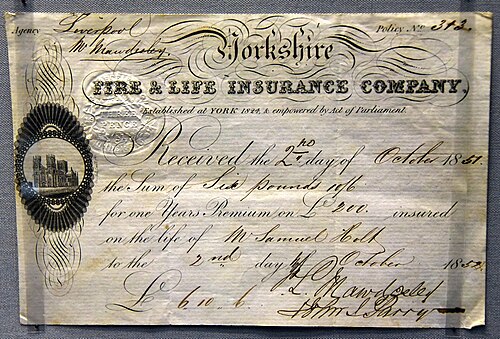 Agency Liverpool Policy No. 313
Mr Mawdesley
Yorkshire
FIRE & LIFE INSURANCE COMPANY,
Established at YORK 1824, & empowered by Act of Parliament.
Received the 2nd day of October 1851.
the Sum of Six pounds 10/6
for one Years Premium on £ 200. insured
on the life of Mr Samuel Holt
to the 2nd day of October 1852.
£ 6.10.6
Mawdesley
Parry